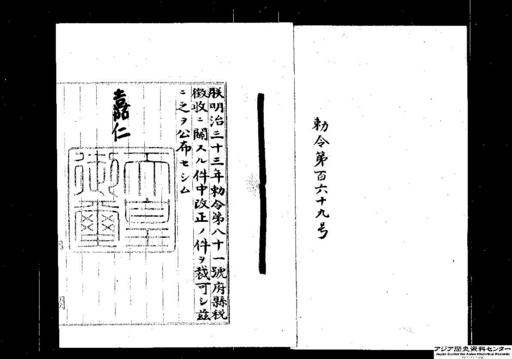 勅令第百六十九号
朕明治三十三年勅令第八十一號府縣税
徴收ニ關スル件中改正ノ件ヲ裁可シ茲
ニ之ヲ公布セシム
嘉仁
天皇御璽
アジア歴史資料センター
Japan Center for Asian Historical Records